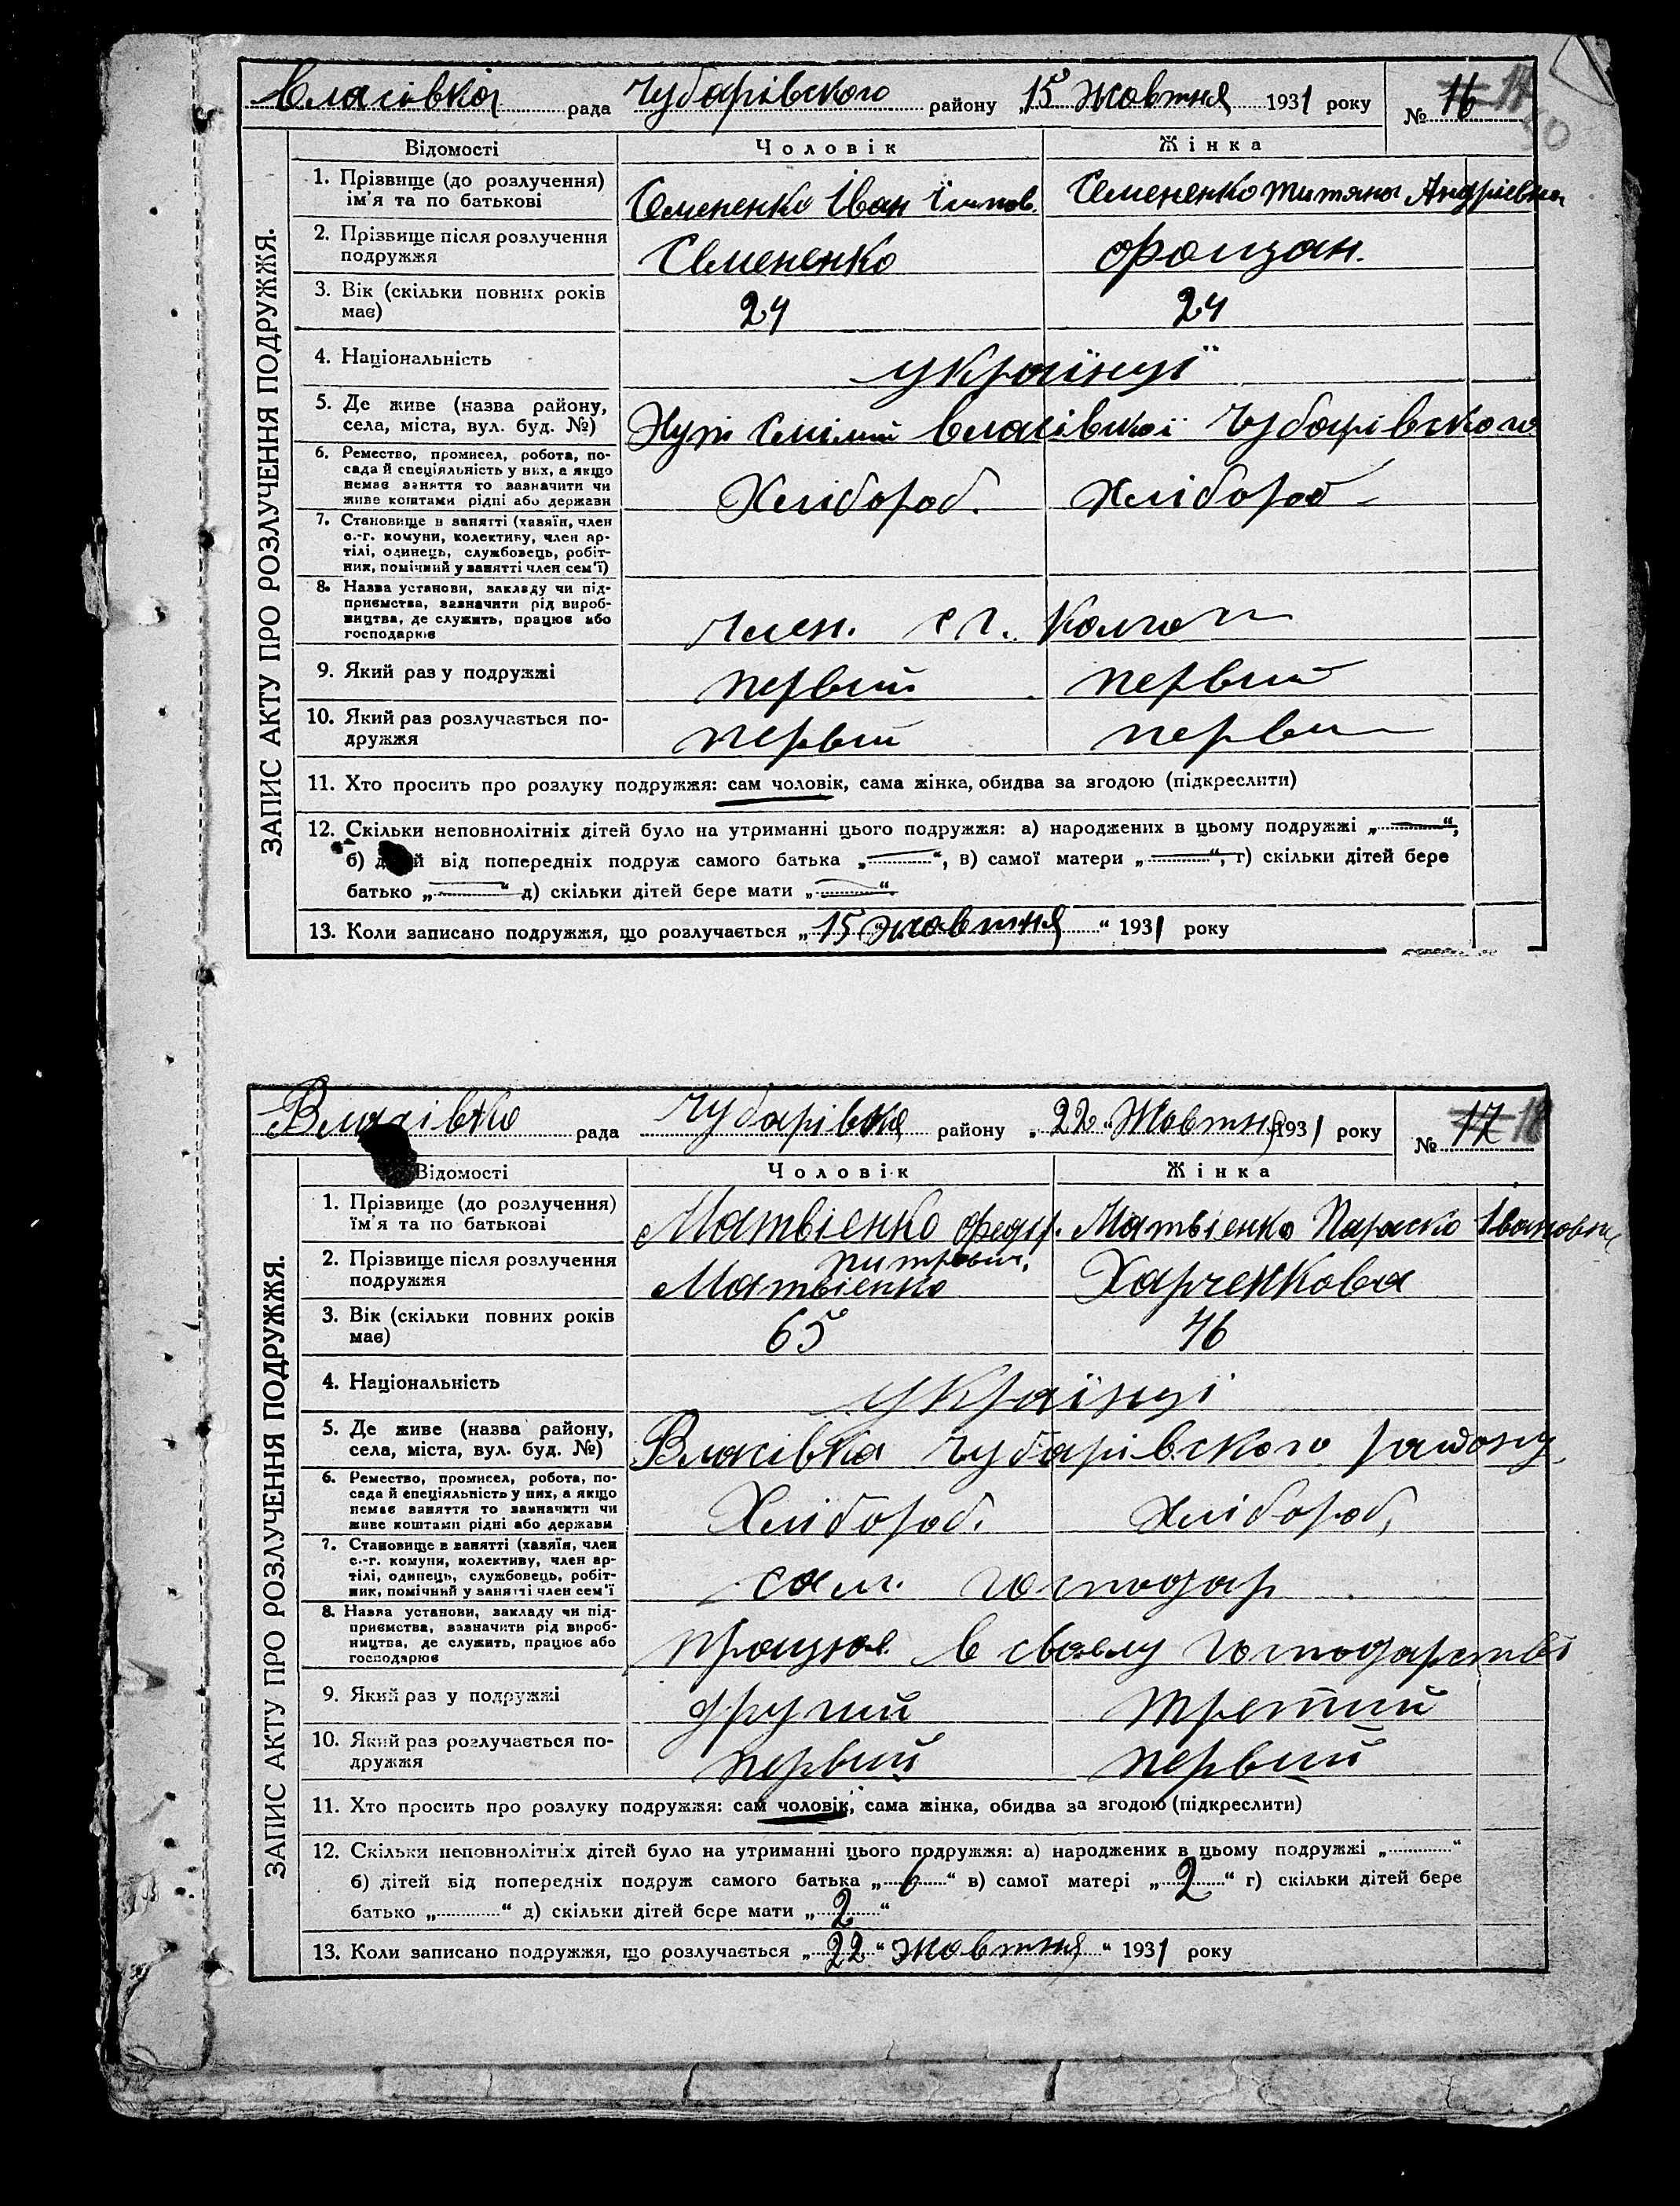 Власівка рада Чубарівского району „15 Жовтня 1931 року № 16
Відомості Чоловік Жінка
ЗАПИС АКТУ ПРО РОЗЛУЧЕННЯ ПОДРУЖЖЯ.
1. Прізвище (до розлучення) Семененко Іван Семененко Титяна Андріевна
ім'я та по батькові
2. Прізвище після розлучення Семененко
подружжя
3. Вік (скільки повних років 24 24
має)
4. Національність українці
5. Де живе (назва району, Хут Власівкої Чубарівского
села, міста, вул. буд. №)
6. Ремество, промисел, робота, по- Хлібороб. Хлібороб
сада й спеціяльність у них, а якщо
немає заняття то зазначити чи
живе коштами рідні або держави
7. Становище в занятті (хазяїн, член
с.-г. комуни, колективу, член ар-
тілі, одинець, службовець, робіт-
ник, помічний у занятті член сем'ї)
8. Назва установи, закладу чи під- член. с г.
приємства, зазначити рід вироб-
ництва, де служить, працює або
господарює
9. Який раз у подружжі первий первий
10. Який раз розлучається по- первий первий
дружжя
11. Хто просить про розлуку подружжя: сам чоловік, сама жінка, обидва за згодою (підкреслити)
12. Скільки неповнолітніх дітей було на утриманні цього подружжя: а) народжених в цьому подружжі „—“,
б) від попередніх подруж самого батька „—“, в) самої матери „—“, г) скільки дітей бере
батько „—“ д) скільки дітей бере мати „—“
13. Коли записано подружжя, що розлучається „15 жовтня“ 1931 року
Власівка рада Чубарівка району „22“ Жовтня 1931 року № 17 18
Відомості Чоловік Жінка
ЗАПИС АКТУ ПРО РОЗЛУЧЕННЯ ПОДРУЖЖЯ.
1. Прізвище (до розлучення) Матвіенко Федір. Матвіенко Параска Івановна
їм'я та по батькові
2. Прізвище після розлучення Матвіенко Харченкова
подружжя
3. Вік (скільки повних років 65 46
має)
4. Національність українці
5. Де живе (назва району, Власівка Чубарівского району
села, міста, вул. буд. №)
6. Ремество, промисел, робота, по- Хлібороб. Хлібороб,
сада й спеціяльність у них, а якщо
немає заняття то зазначити чи
живе коштами рідні або держави
7. Становище в занятті (хазяїн, член сам. господар.
с.-г. комуни, колективу, член ар-
тілі, одинець, службовець, робіт-
ник, помічний у занятті член сем'ї
8. Назва установи, закладу чи під- працює в своему господарстві
приємства, зазначити рід вироб-
ництва, де служить, працює або
господарює
9. Який раз у подружжі другий третий
10. Який раз розлучається по- первий первий
дружжя
11. Хто просить про розлуку подружжя: сам чоловік, сама жінка, обидва за згодою (підкреслити)
12. Скільки неповнолітніх дітей було на утриманні цього подружжя: а) народжених в цьому подружжі „“
б) дітей від попередніх подруж самого батька „“ в) самої матері „2“ г) скільки дітей бере
батько „“ д) скільки дітей бере мати „2“
13. Коли записано подружжя, що розлучається „22“ жовтня“ 1931 року